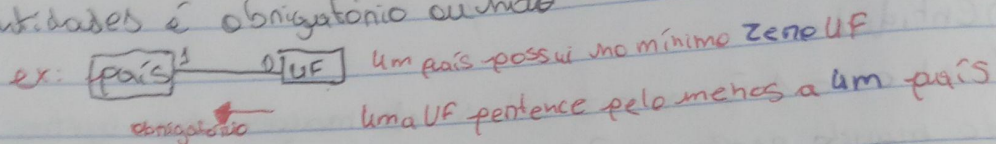 entidades é obrigatório ou não
ex: país 1 0 UF Um país possui no mínimo zero UF
obrigatório Uma UF pertence pelo menos a um país